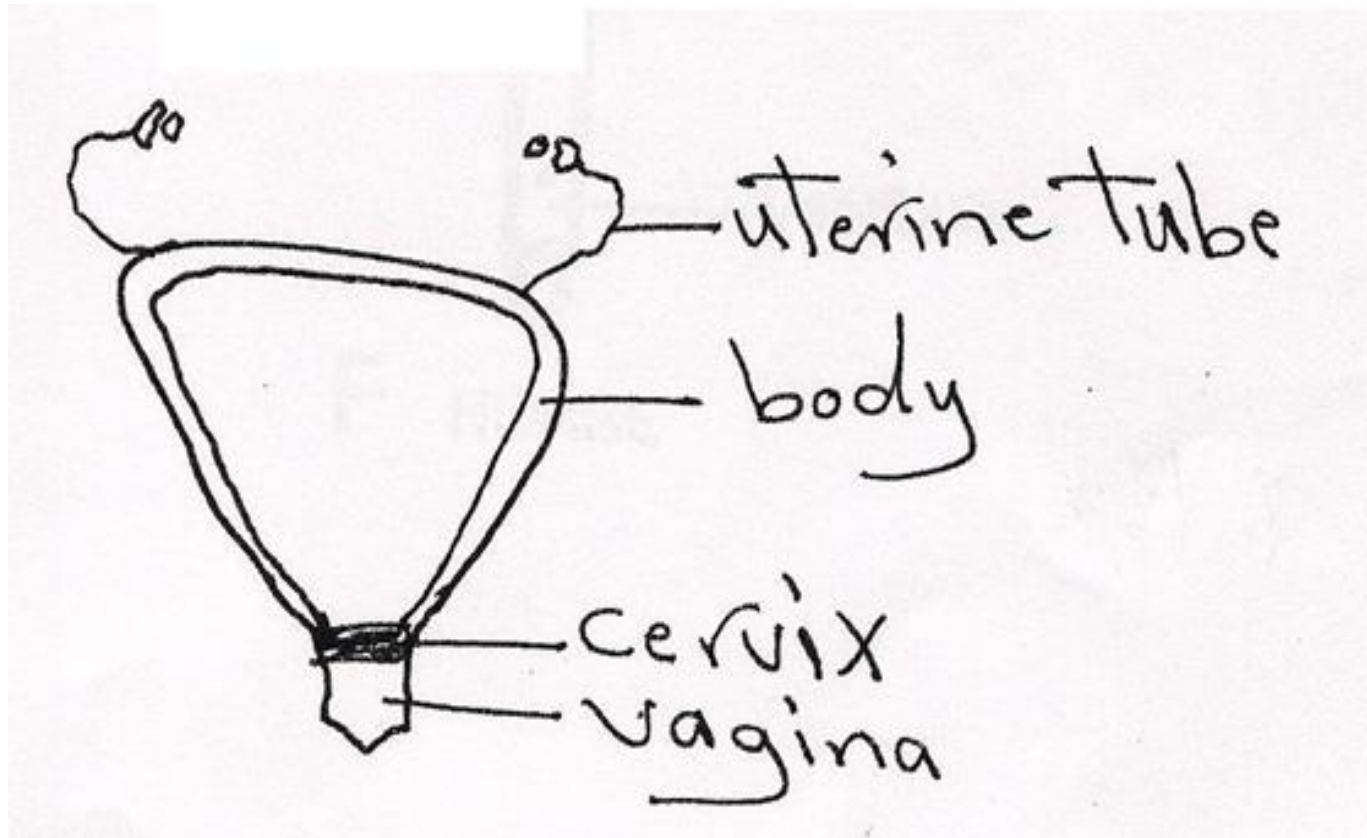 uterine tube
body
cervix
vagina